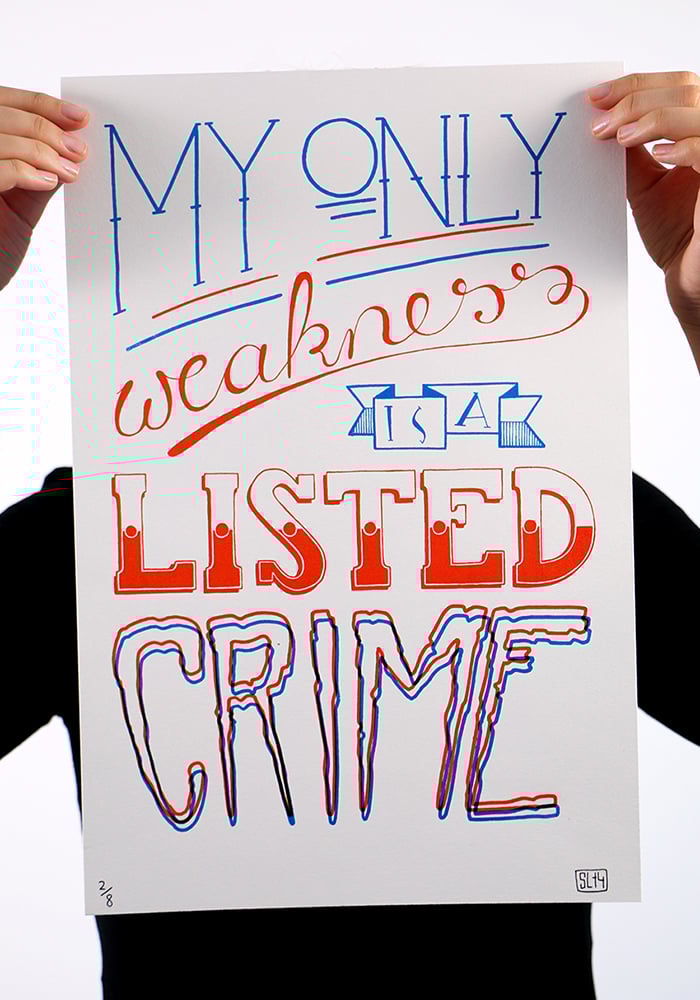 MY ONLY
weakness
IS A
LISTED
CRIME
2/8
SLt4